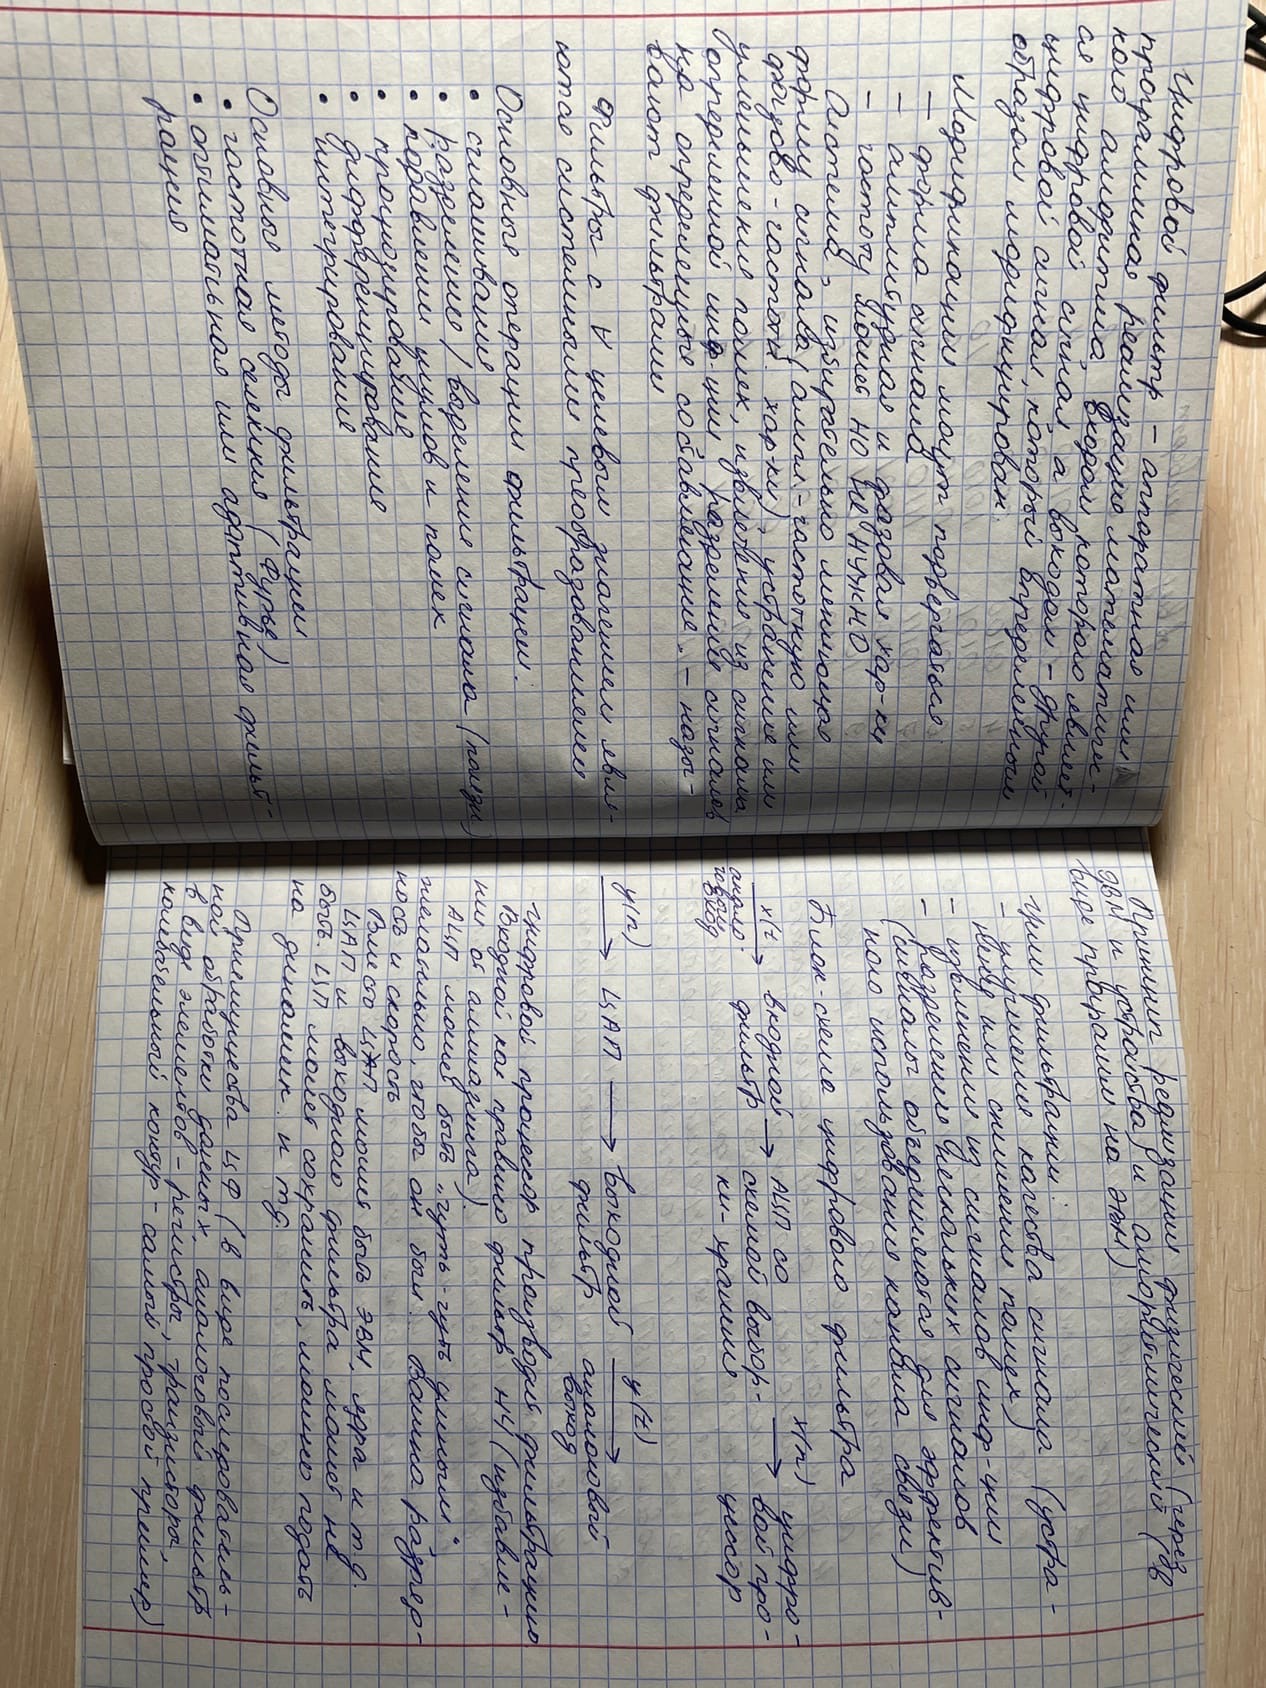 Цифровой фильтр – аппаратная или
программная реализация математичес-
кого алгоритма, входом которого являет-
ся цифровой сигнал, а выходом – другой
цифровой сигнал, который определенным
образом модифицирован.
Модификации могут подвергаться
– форма сигнала
– амплитудная и фазовая хар-ки
– частоту может НО НЕ НУЖНО
Система, избирательно меняющая
форму сигнала (ампл.-частотную или
фазово-частотн. хар-ки), устранение или
уменьшение помех, извлечение из сигнала
определенной инф-ции, разделение сигналов
на определенные составляющие. – назы-
вают фильтрами
Фильтры с ∀ целевым значением явля-
ются системными преобразованиями
Основные операции фильтрации:
• сглаживание
• разделение / выделение сигнала (полезн)
• подавление шумов и помех
• прогнозирование
• дифференцирование
• интегрирование
Основные методы фильтрации
• частотная селекция (Фурье)
• оптимальная или адаптивная фильт-
рация
Принцип реализации физический (через
ЭВМ и устройства) и алгоритмический (в
виде программ на ЭВМ)
Цели фильтрации:
– улучшение качества сигнала (устра-
нение или снижение помех)
– извлечение из сигналов инф-ции
– разделение нескольких сигналов
(сигналы объединяются для эффектив-
ного использования канала связи)
Блок-схема цифрового фильтра
x(t → входной → АЦП со x(n) → цифро-
анало- фильтр схемой выбор- вой про-
говый ки-хранения цессор
вход
y(n) → ЦАП → выходной y(t) →
фильтр аналоговый
выход
Цифровой процессор производит фильтрацию
Входной как правило фильтр НЧ (избавле-
ние от аллиазинга).
АЦП может быть „чуть-чуть умным“,
желательно, чтобы он был... Важна разряд-
ность и скорость
Вместо ЦАП может быть ЭВМ, ядра и т.д.
ЦАП и выходного фильтра может не
быть. ЦП может сохранить, можно подать
на динамик. и т.д.
Приемущества ЦФ (в виде последователь-
ной обработки данных, аналоговый фильтр
в виде элементов – регистры, транзисторы,
колебательный контур – самый простой пример)